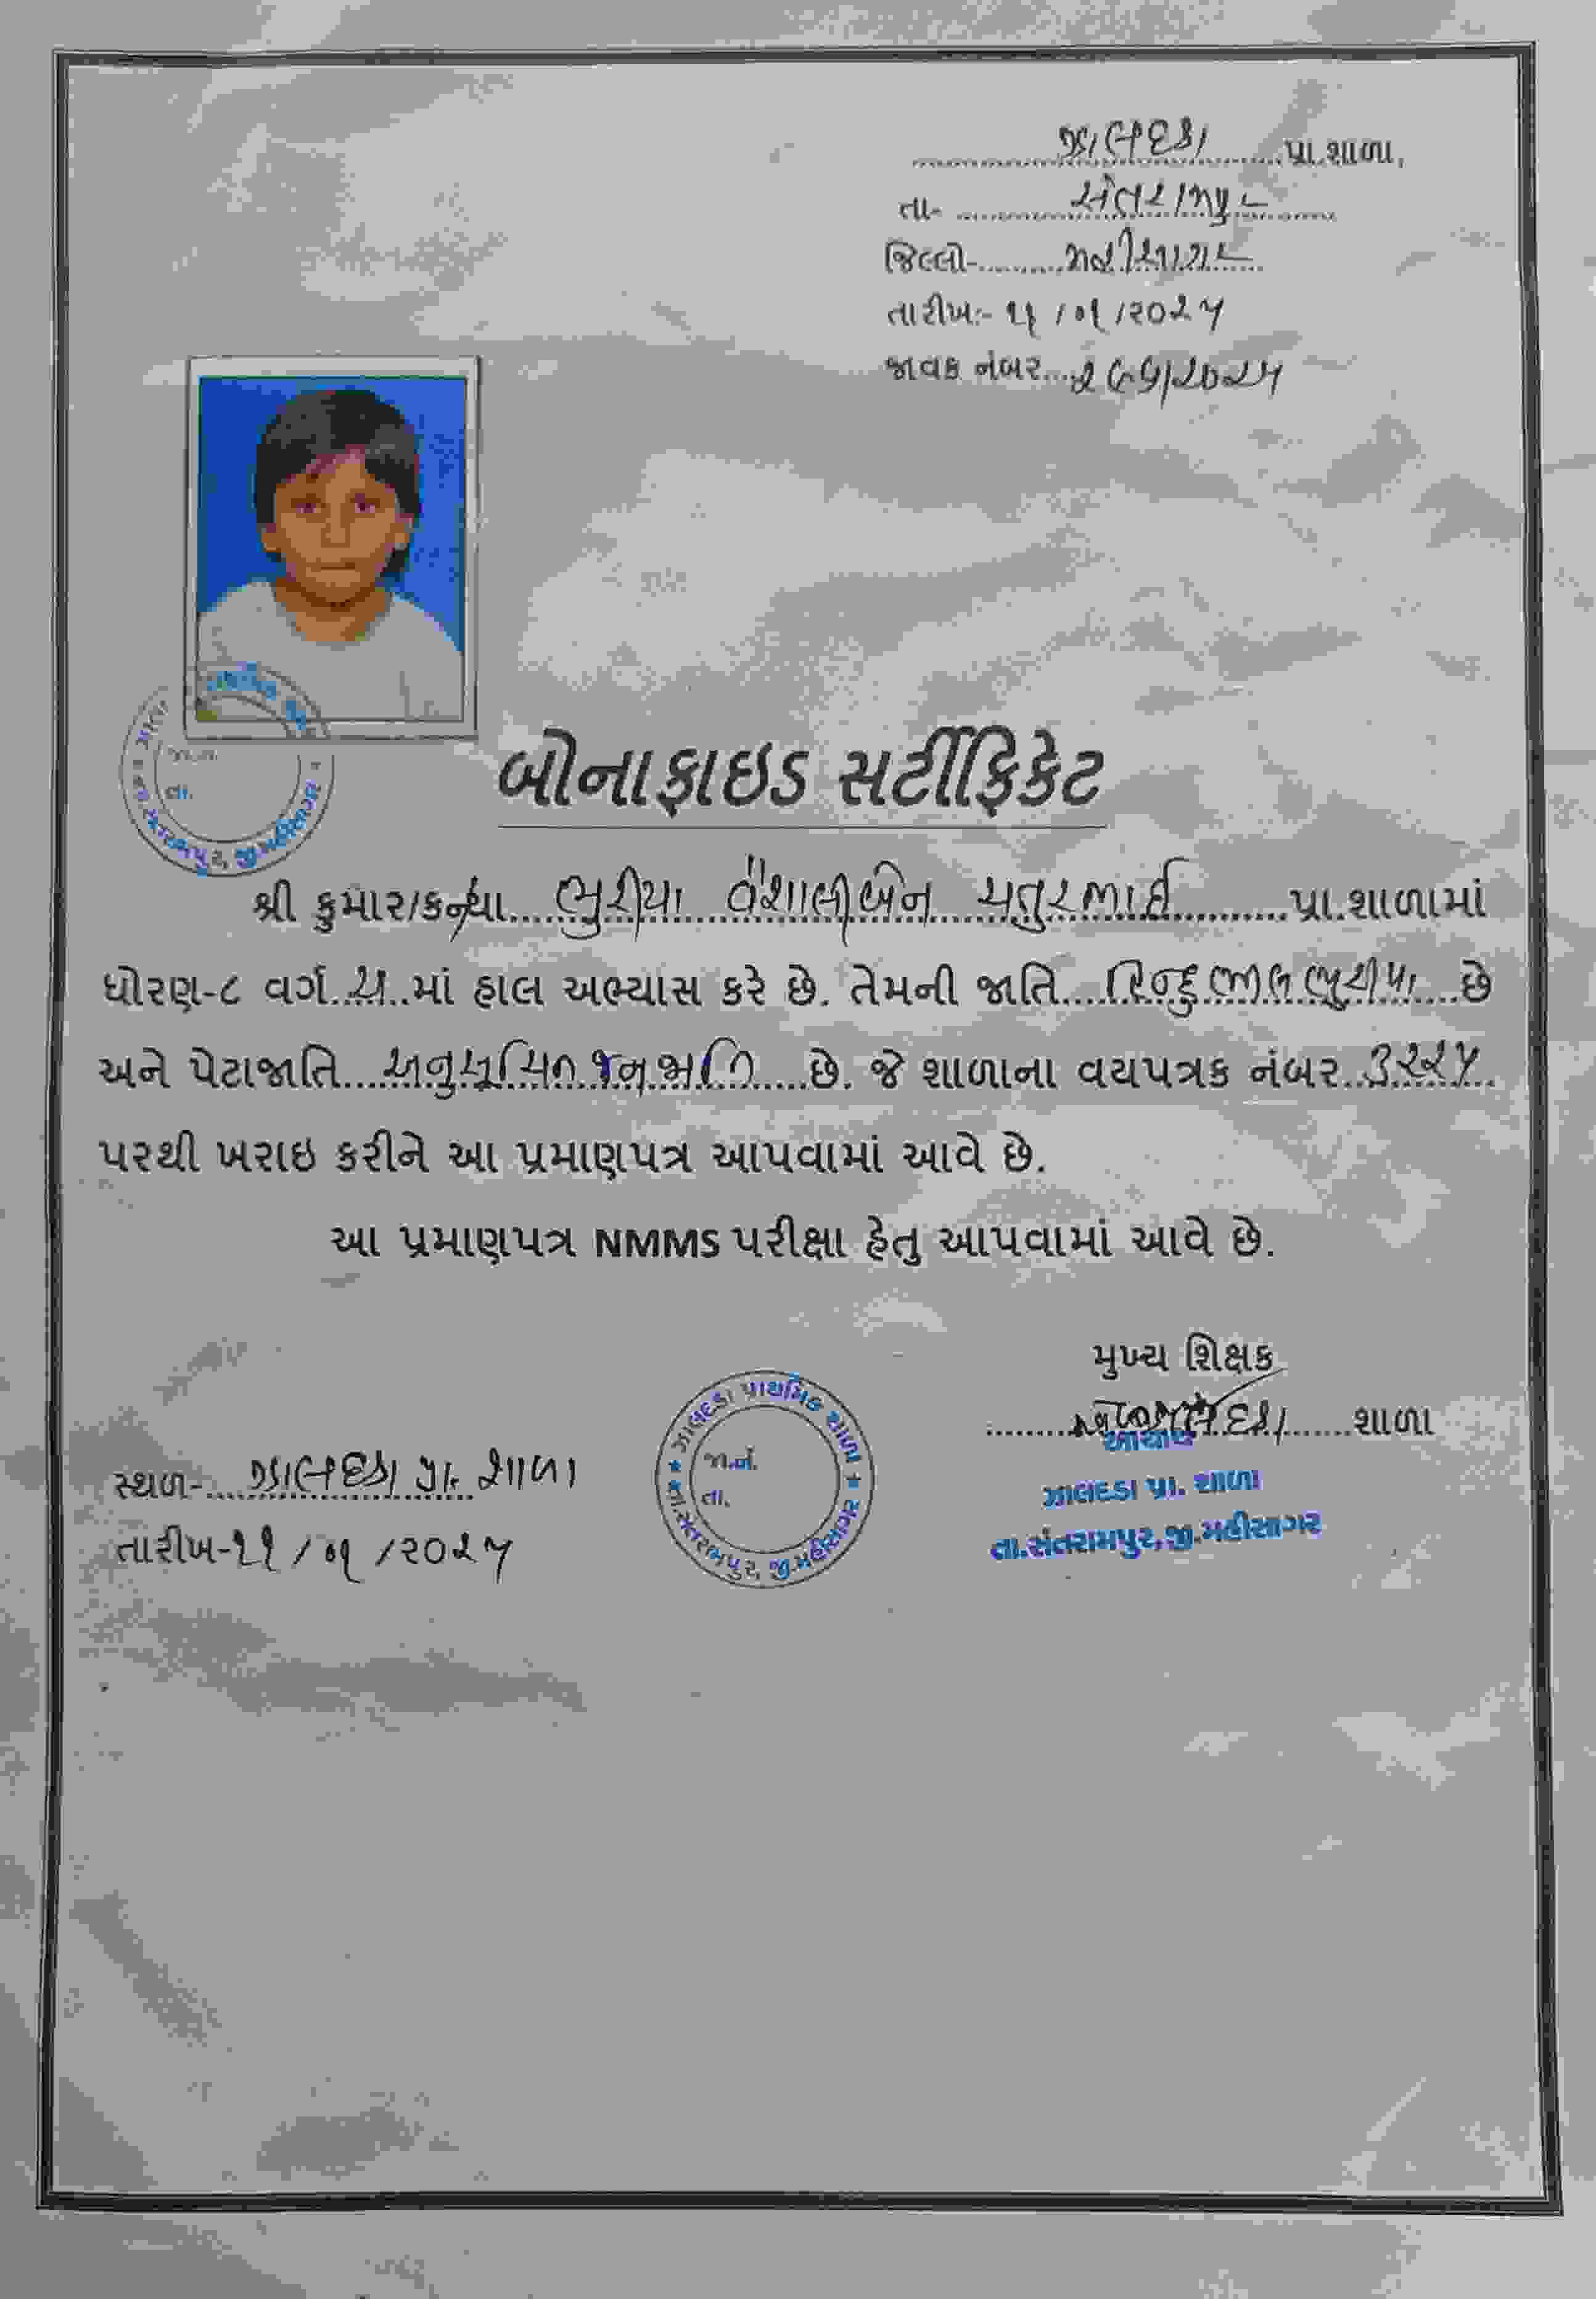 ઝાલદડા પ્રા.શાળા,
તા- સંતરામપુર
જિલ્લો- મહીસાગર
તારીખ:- ૧૧ / ૦૧ / ૨૦૨૫
જાવક નંબર.... /૨૦૨૫
બોનાફાઇડ સર્ટીફિકેટ
શ્રી કુમાર/કન્યા ભુરીયા વૈશાલીબેન ચતુરભાઈ પ્રા.શાળામાં
ધોરણ-૮ વર્ગ માં હાલ અભ્યાસ કરે છે. તેમની જાતિ હિન્દુ ભીલ ભુરીયા છે
અને પેટાજાતિ અનુસૂચિત જનજાતિ છે. જે શાળાના વયપત્રક નંબર ૩૨૨૫
પરથી ખરાઇ કરીને આ પ્રમાણપત્ર આપવામાં આવે છે.
આ પ્રમાણપત્ર NMMS પરીક્ષા હેતુ આપવામાં આવે છે.
મુખ્ય શિક્ષક
શાળા
આચાર્ય
ઝાલદડા પ્રા. શાળા
તા.સંતરામપુર,જી.મહીસાગર
ઝાલદડા પ્રાથમિક શાળા
જા.નં.
તા.
તા.સંતરામપુર, જી.મહીસાગર
સ્થળ- ઝાલદડા પ્રા. શાળા
તારીખ-૧૧ / ૦૧ / ૨૦૨૫